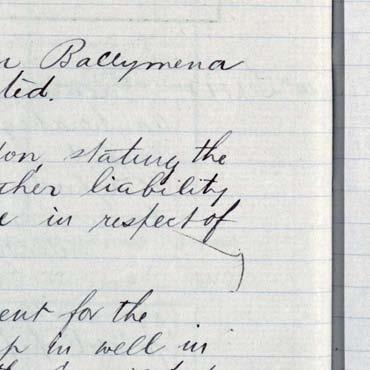 Ballymena
ted.
ion, stating the
ther liability
e in respect of
ent for the
p in well in